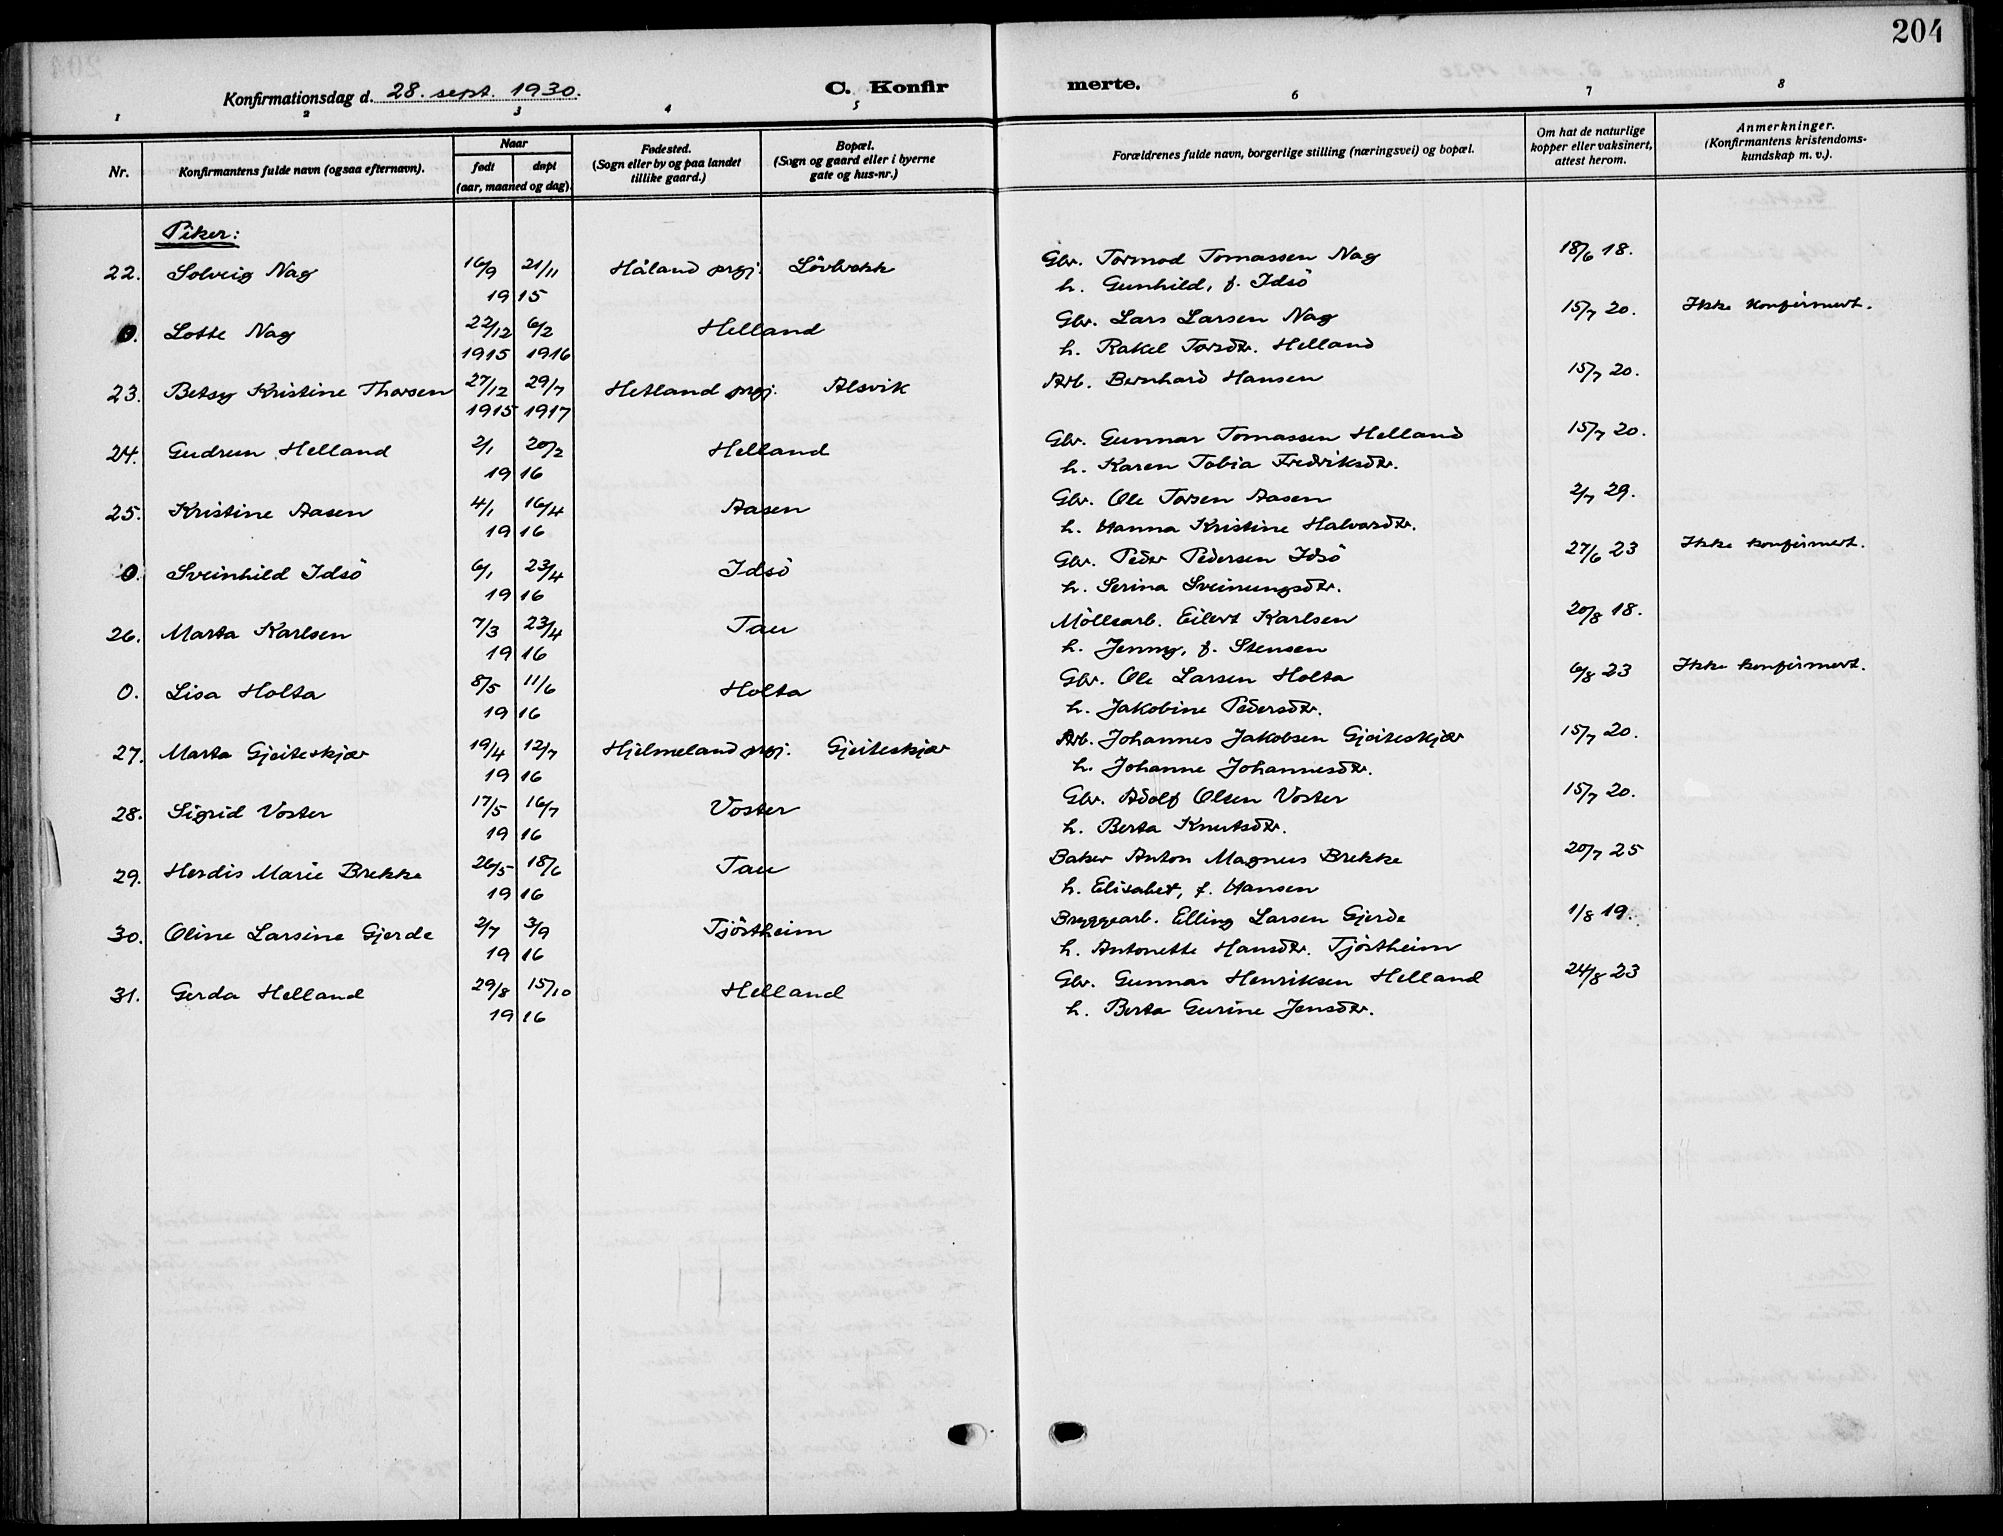 204
Konfirmationsdag d. 28. sept. 1930.
C. Konfirmerte.
1 2 3 4 5 6 7 8
Nr.
Konfirmantens fulde navn (ogsaa efternavn).
Naar
født døpt
(aar, maaned og dag).
Fødested.
(Sogn eller by og paa landet
tillike gaard.)
Bopæl.
(Sogn og gaard eller i byerne
gate og hus-nr.)
Forældrenes fulde navn, borgerlige stilling (næringsvei) og bopæl.
Om hat de naturlige
kopper eller vaksinert,
attest herom.
Anmerkninger.
(Konfirmantens kristendoms-
kundskap m. v.).
Piker:
22. Solveig Nag 16/9 21/11 Håland prgj. Lövbrekk Gbr. Tormod Tomassen Nag 18/6 18.
1915 h. Gunhild, f. Idsö
0. Lotte Nag 22/12 6/2 Helland Gbr. Lars Larsen Nag 15/7 20. Ikke konfirmert.
1915 1916 h. Rakel Torsdtr. Helland
23. Betsy Kristine Thorsen 27/12 29/7 Hetland prgj. Alsvik Arb. Bernhard Hansen 15/7 20.
1915 1917
24. Gudrun Helland 2/1 20/2 Helland Gbr. Gunnar Tomassen Helland 15/7 20.
1916 h. Karen Tobia Fredriksdtr.
25. Kristine Aasen 4/1 16/4 Aasen Gbr. Ole Torsen Aasen 2/7 29.
1916 h. Hanna Kristine Halvardtr.
0. Sveinhild Idsö 6/1 23/4 Idsö Gbr. Peder Pedersen Idsö 27/6 23 Ikke konfirmert.
1916 h. Serina Sveinungsdtr.
26. Marta Karlsen 7/3 23/4 Tau Möllearb. Eilert Karlsen 20/8 18.
1916 h. Jenny, f. Stensen
0. Lisa Holta 8/5 11/6 Holta Gbr. Ole Larsen Holta 6/8 23 Ikke konfirmert.
1916 h. Jakobine Pedersdtr.
27. Marta Gjeiteskjær 19/4 12/7 Hjelmeland prgj. Gjeiteskjær Arb. Johannes Jakobsen Gjeiteskjær 15/7 20.
1916 h. Johanne Johannesdtr.
28. Sigrid Voster 17/5 16/7 Voster Gbr. Adolf Olsen Voster 15/7 20.
1916 h. Berta Knutsdtr.
29. Herdis Marie Brekke 26/5 18/6 Tau Baker Anton Magnus Brekke 20/7 25
1916 h. Elisabet, f. Hansen
30. Oline Larsine Gjerde 2/7 3/9 Tjöstheim Bryggearb. Elling Larsen Gjerde 1/8 19.
1916 h. Antonette Hansdtr. Tjöstheim
31. Gerda Helland 29/8 15/10 Helland Gbr. Gunnar Henriksen Helland 24/8 23
1916 h. Berta Gurine Jensdtr.